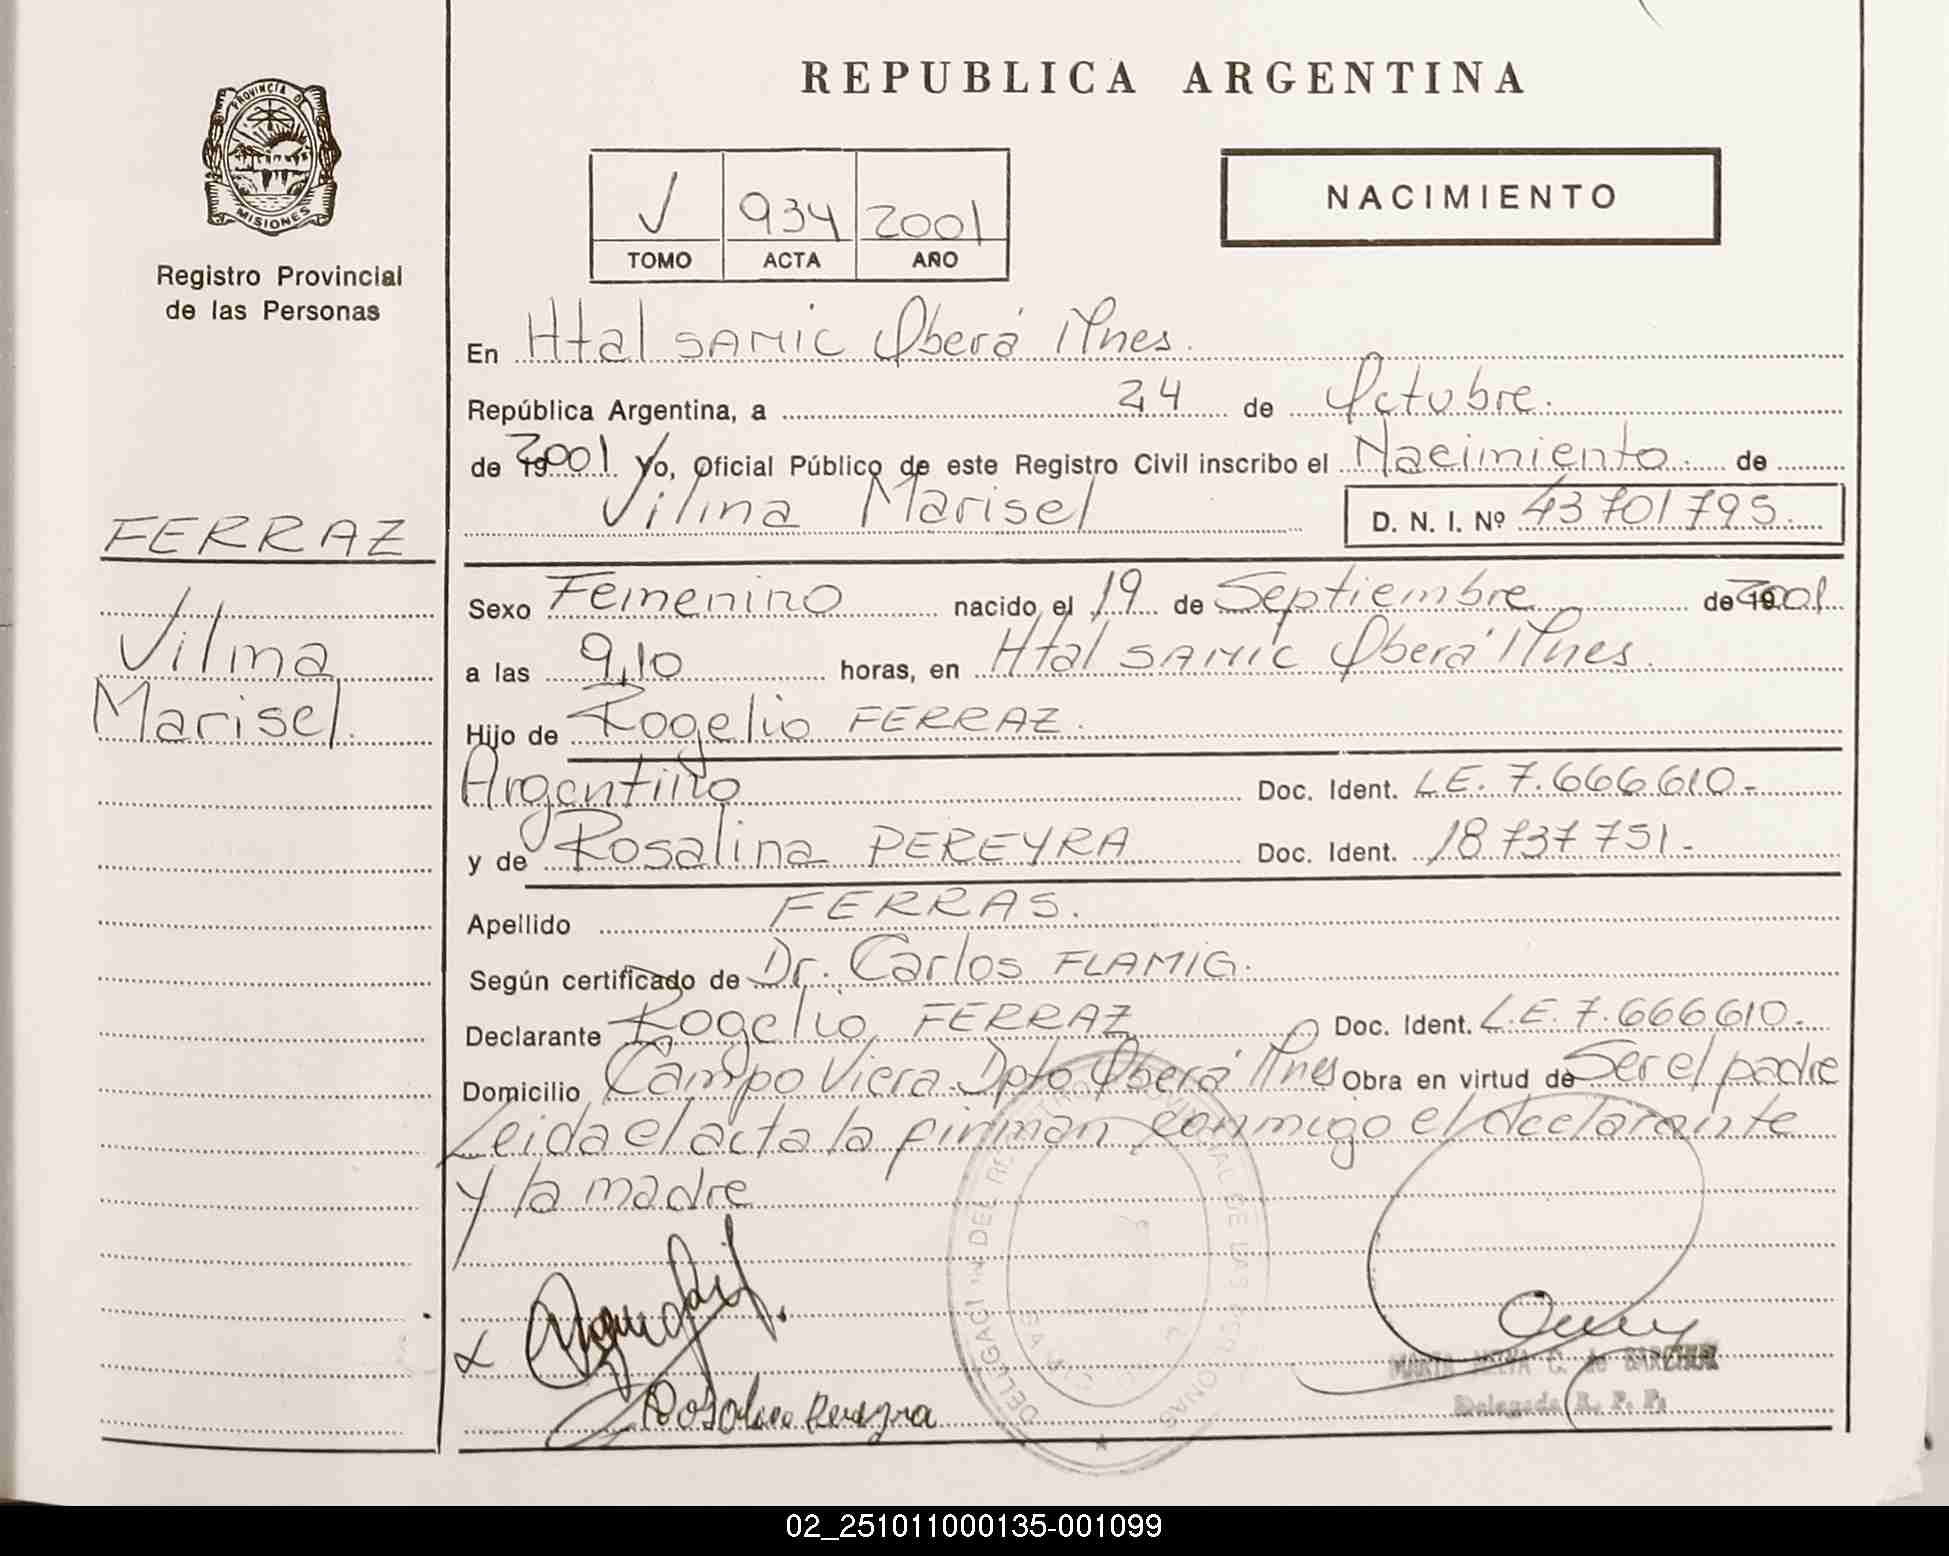 REPUBLICA ARGENTINA
PROVINCIA D
MISIONES
Registro Provincial
de las Personas
V 934 2001
TOMO ACTA AÑO
NACIMIENTO
En Htal SAMIC Oberá Mnes.
República Argentina, a 24 de Octubre.
de 2001 Yo, Oficial Público de este Registro Civil inscribo el Nacimiento de
Vilma Marisel D. N. I. Nº 43701795
FERRAZ
Vilma
Marisel.
Sexo Femenino nacido el 19 de Septiembre de 2001
a las 9,10 horas, en Htal SAMIC Oberá Mnes.
Hijo de Rogelio FERRAZ.
Argentino Doc. Ident. L.E. 7.666.610.-
y de Rosalina PEREYRA Doc. Ident. 18.737.751.-
Apellido FERRAS.
Según certificado de Dr. Carlos FLAMIG.
Declarante Rogelio FERRAZ Doc. Ident. L.E. 7.666610.-
Domicilio Campo Viera. Dpto Oberá Mnes Obra en virtud de Ser el padre
Leida el acta la firman conmigo el declarante
y la madre
Pereyra
DELEGACI N DEL REGISTRO PROVINCIAL DE LAS PERSONAS
MARTA C. de
Delegada R. P. P.
02_251011000135-001099